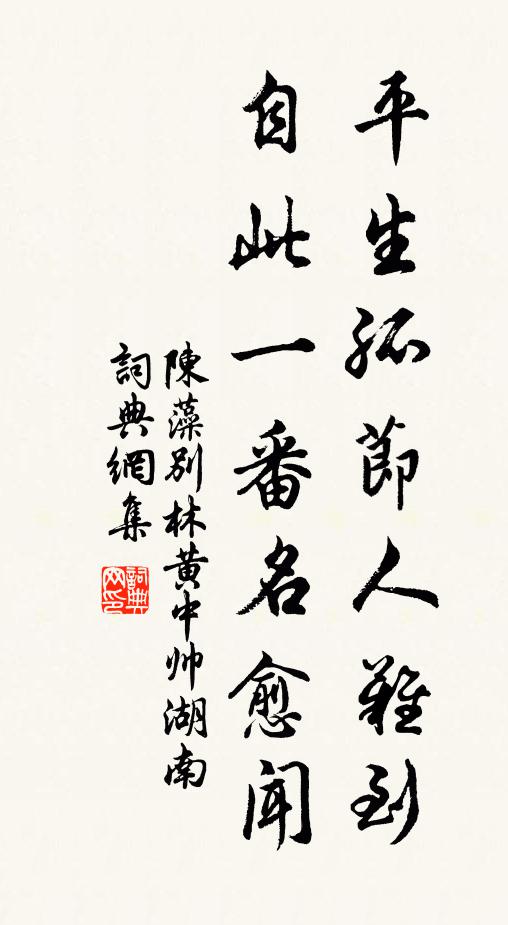 平生孤節人難到
自此一番名愈聞
陳藻別林黄中帅湖南
詞典網集
詞典网印